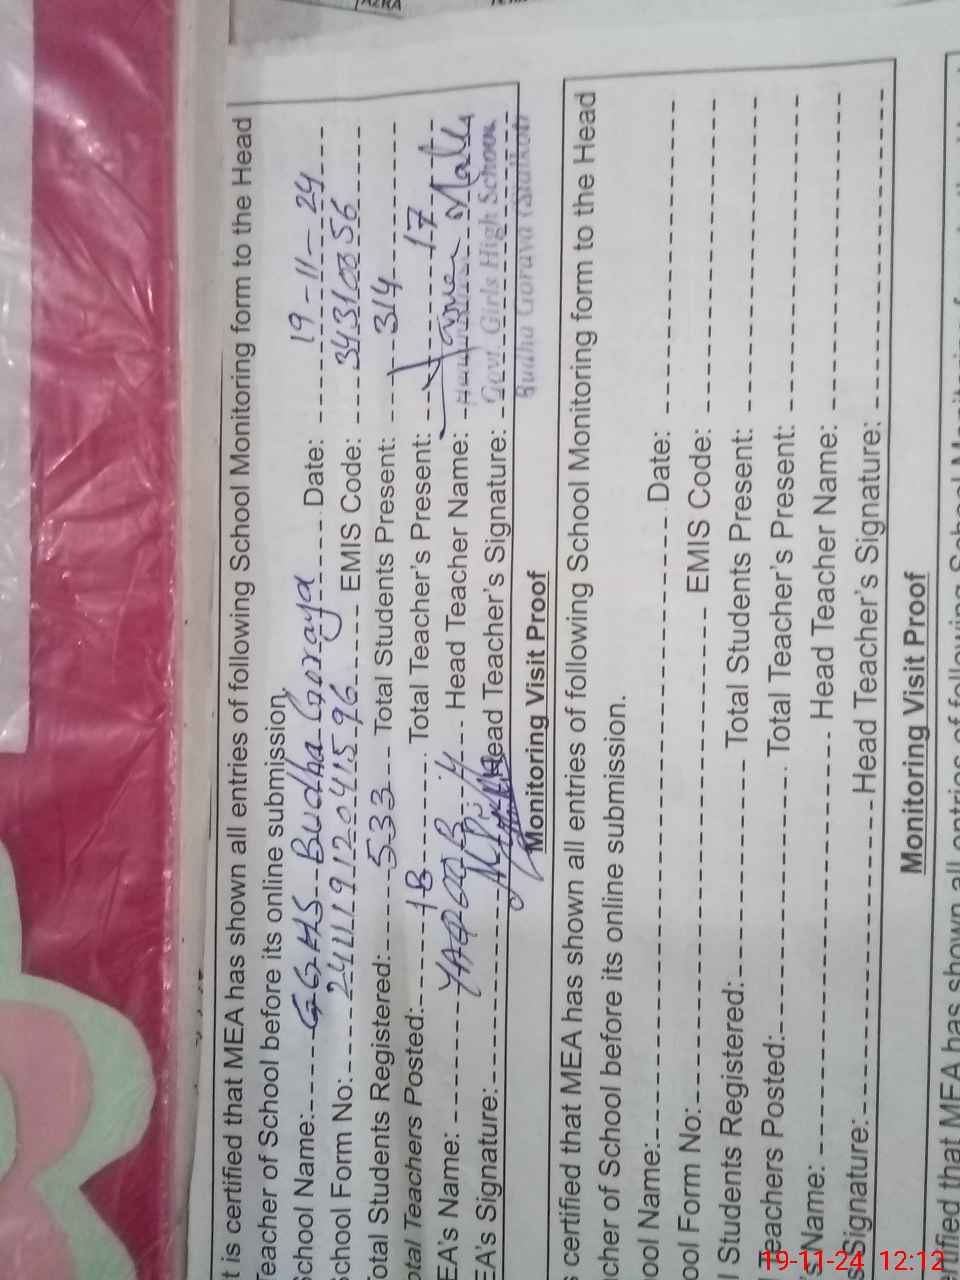 t is certified that MEA has shown all entries of following School Monitoring form to the Head
Teacher of School before its online submission.
School Name: GGHS Budha Goraya Date: 19-11-24
School Form No: EMIS Code: 34310056
Total Students Registered: 533 Total Students Present: 314
otal Teachers Posted: 18 Total Teacher's Present: 17
EA's Name: YAQOOB Head Teacher Name:
EA's Signature: Head Teacher's Signature:
Govt. Girls High School
Budha Goraya (Sialkot)
Monitoring Visit Proof
s certified that MEA has shown all entries of following School Monitoring form to the Head
cher of School before its online submission.
ool Name: Date:
ool Form No: EMIS Code:
l Students Registered: Total Students Present:
Teachers Posted: Total Teacher's Present:
s Name: Head Teacher Name:
s Signature: Head Teacher's Signature:
Monitoring Visit Proof
19-11-24 12:12